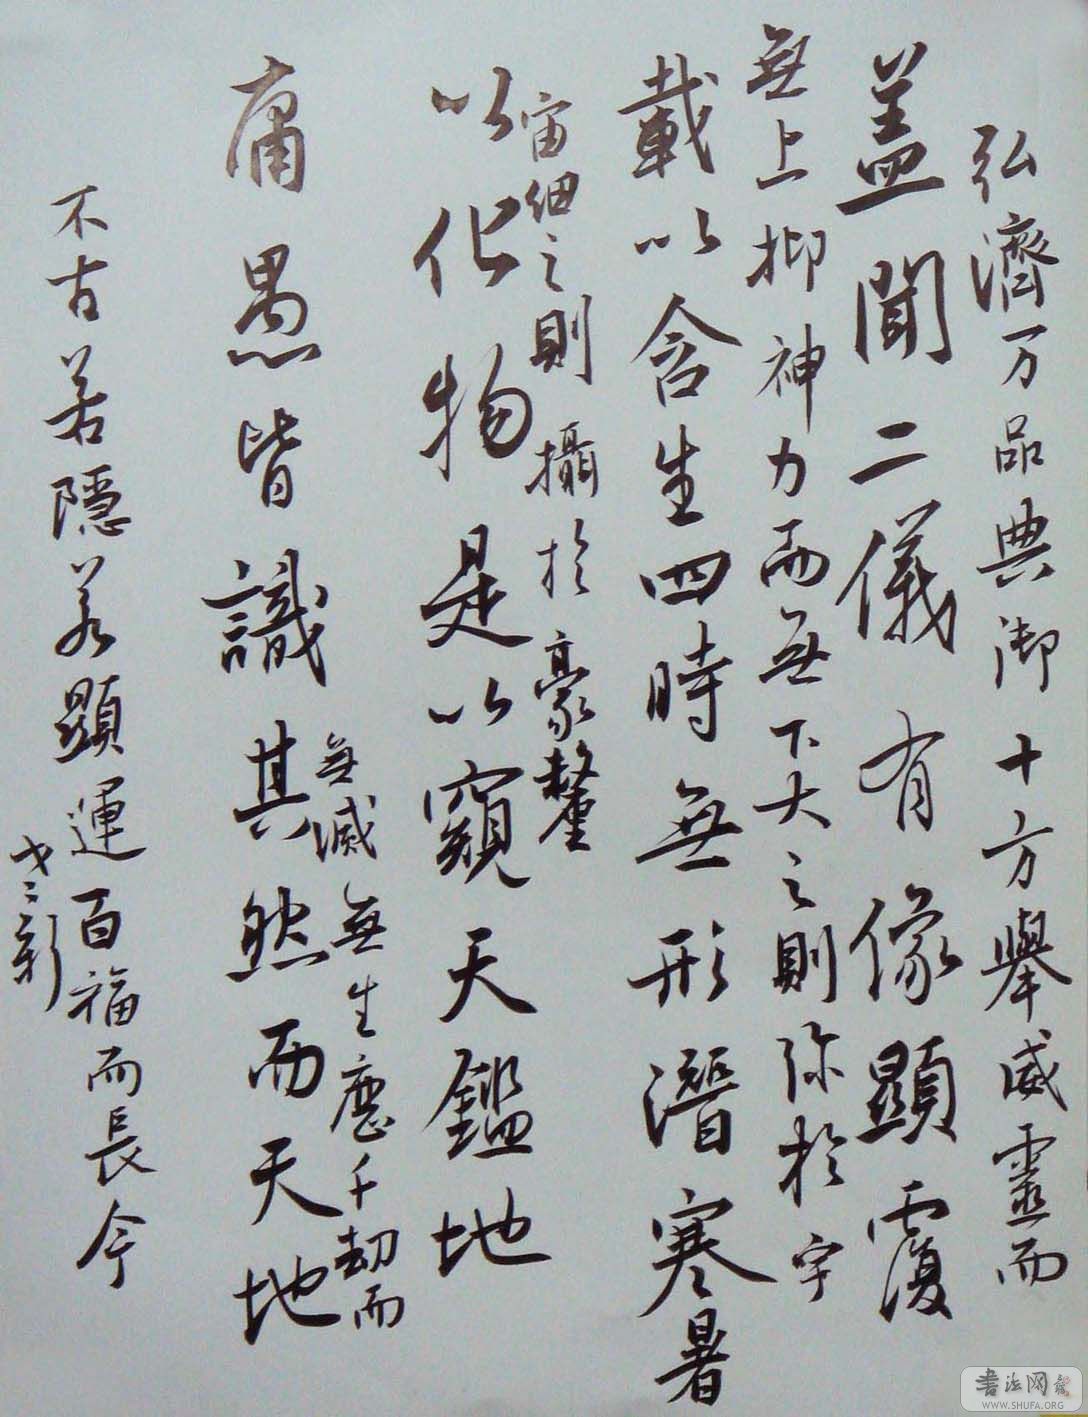 弘濟万品典御十方舉威靈而
盖聞二儀有像顯覆
無上抑神力而無下大之則弥於宇
載以含生四時無形潛寒暑
宙細之則攝於豪釐
以化物是以窺天鑑地
無滅無生歷千劫而
庸愚皆識其然而天地
不古若隱若顯運百福而長今
新
書法网
WWW.SHUFA.ORG